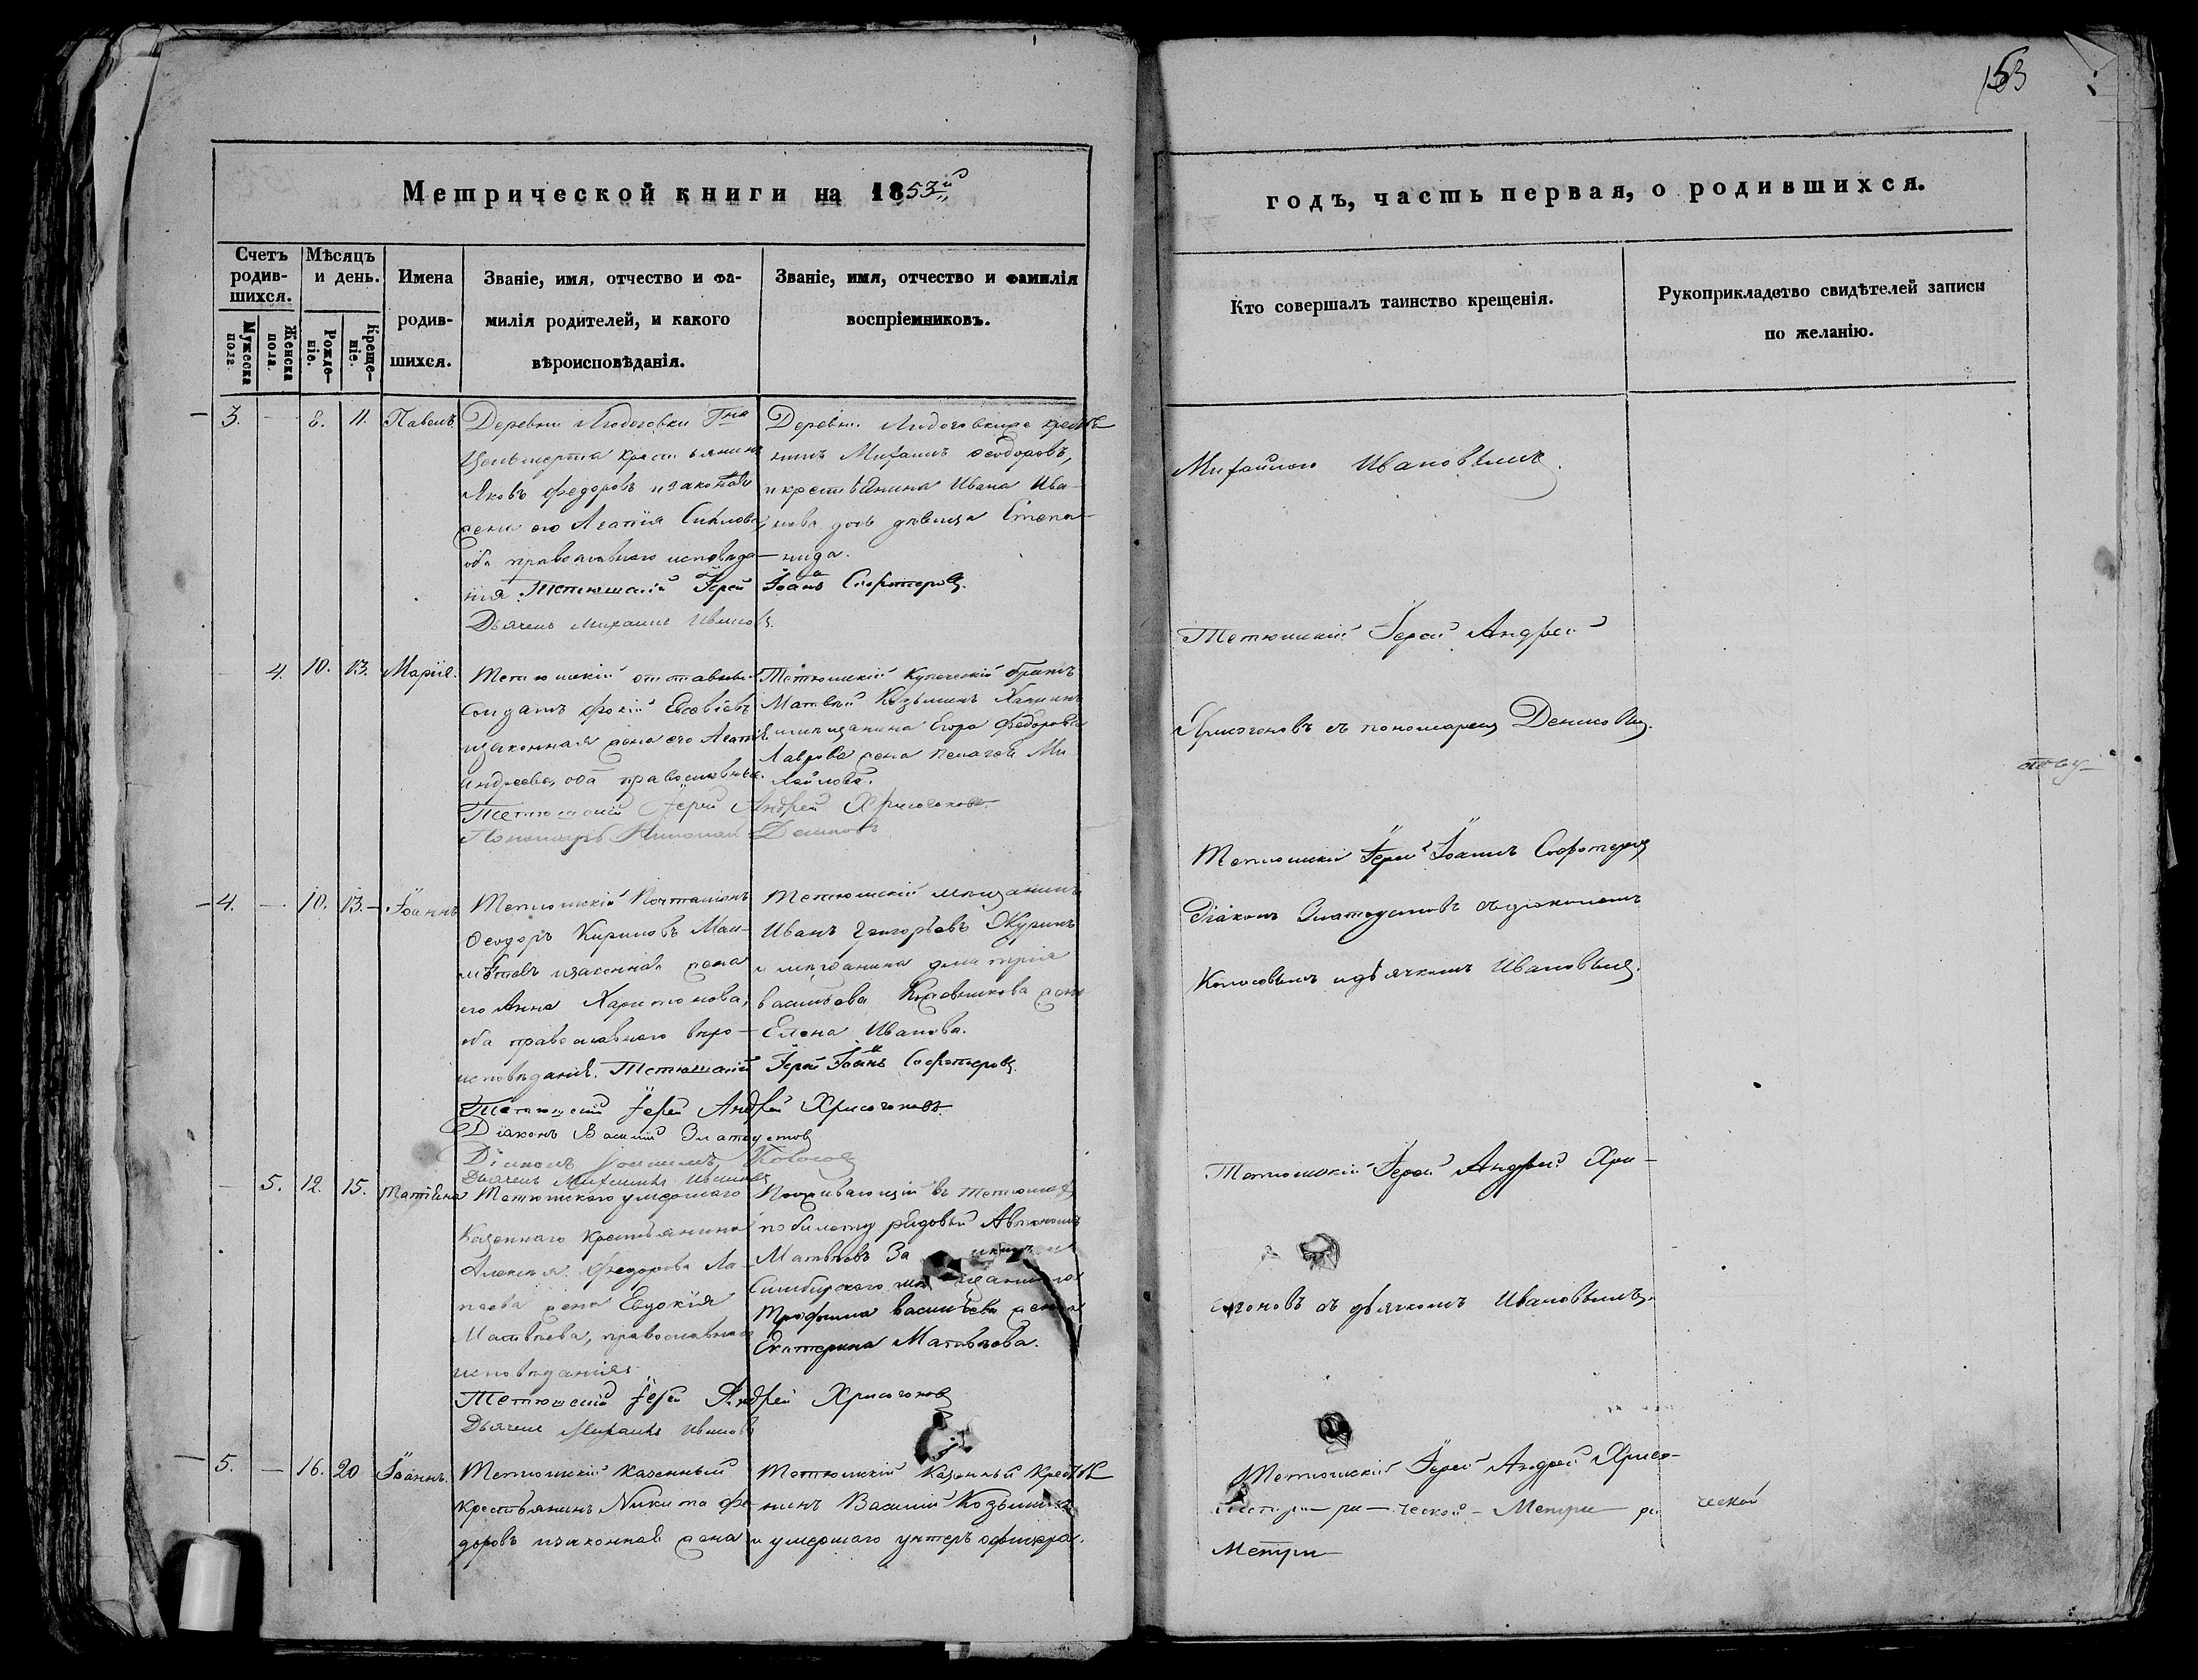 153
Метрической книги на 1853й
годъ, часть первая, о родившихся.
Счетъ родив-шихся.
Мужеска пола.
Женска пола.
Мѣсяцъ и день.
Рожде-ніе.
Креще-ніе.
Имена родив-шихся.
Званіе, имя, отчество и фа-
милія родителей, и какого
вѣроисповѣданія.
Званіе, имя, отчество и фамилія
воспріемниковъ.
Кто совершалъ таинство крещенія.
Рукоприкладство свидѣтелей записи
по желанію.
3. — 8. 11. Павелъ
Деревни Людоговки Гна
крестьянинъ
Яковъ Федоровъ изаконная
жена его Агапія
оба православнаго исповѣда-
нія. Тетюшскій Іерей Іоаннъ Софотеровъ.
Дьячекъ Михаилъ Ивановъ.
Деревни Людоговки же крестья-
нинъ Михаилъ Ѳеодоровъ,
и крестьянина Ивана Ива-
нова дочь дѣвица Степа-
нида.
Михайломъ Ивановымъ.
— 4. 10. 13. Марія.
Тетюшскій отставный
Солдатъ Фокій Евсевіевъ
изаконная жена его Агапія
Андреева, оба православные.
Тетюшскій Іерей Андрей Хрисогоновъ.
Пономарь Николай Денисовъ
Тетюшскій Купеческій братъ
Матвей Козьминъ
и мещанина Егора Федорова
Лаврова жена Пелагея Ми
хайлова.
Тетюшскій Іерей Андрей
Хрисогоновъ съ пономаремъ Денисовымъ.
4. — 10. 13. Іоаннъ
Тетюшскій Почталіонъ
Ѳеодоръ Кириловъ
изаконная жена
его Анна Харитонова,
оба православнаго вѣро-
исповѣданія. Тетюшскій Іерей Іоаннъ Софотеровъ.
Тетюшскій Іерей Андрей Хрисогоновъ.
Діаконъ Василій Златоустовъ
Діаконъ Колосовъ
Дьячекъ Михаилъ Ивановъ
Тетюшскій мѣщанинъ
Иванъ Григорьевъ
и мѣщанина Дмитрія
Васильева жена
Елена Иванова.
Тетюшскій Іерей Іоаннъ Софотеровъ
Діаконъ Златоустовъ съ діакономъ
Колосовымъ и дьячкомъ Ивановымъ.
— 5. 12. 15. Татіана
Тетюшскаго умершаго
Казеннаго Крестьянина
Алексѣя Федорова Ла-
жена Евдокія
Матвѣева, православнаго
исповѣданія.
Тетюшскій Іерей Андрей Хрисогоновъ
Дьячекъ Михаилъ Ивановъ
Проживающій въ Тетюшахъ
по билету рядовый Автономъ
Матвѣевъ За
Симбирскаго мѣщанина
Трофима Васильева жена
Екатерина Матвѣева.
Тетюшскій Іерей Андрей Хри-
согоновъ съ дьячкомъ Ивановымъ.
5. — 16. 20 Іоаннъ.
Тетюшскій казенный
крестьянинъ Никита Фе-
доровъ изаконная жена
Тетюшскій Казенный Крестья-
нинъ Василій Козьминъ
и умершаго унтеръ офицера.
Тетюшскій Іерей Андрей Хрисо-
ри — ческой — Метри — ри ческой
Метри